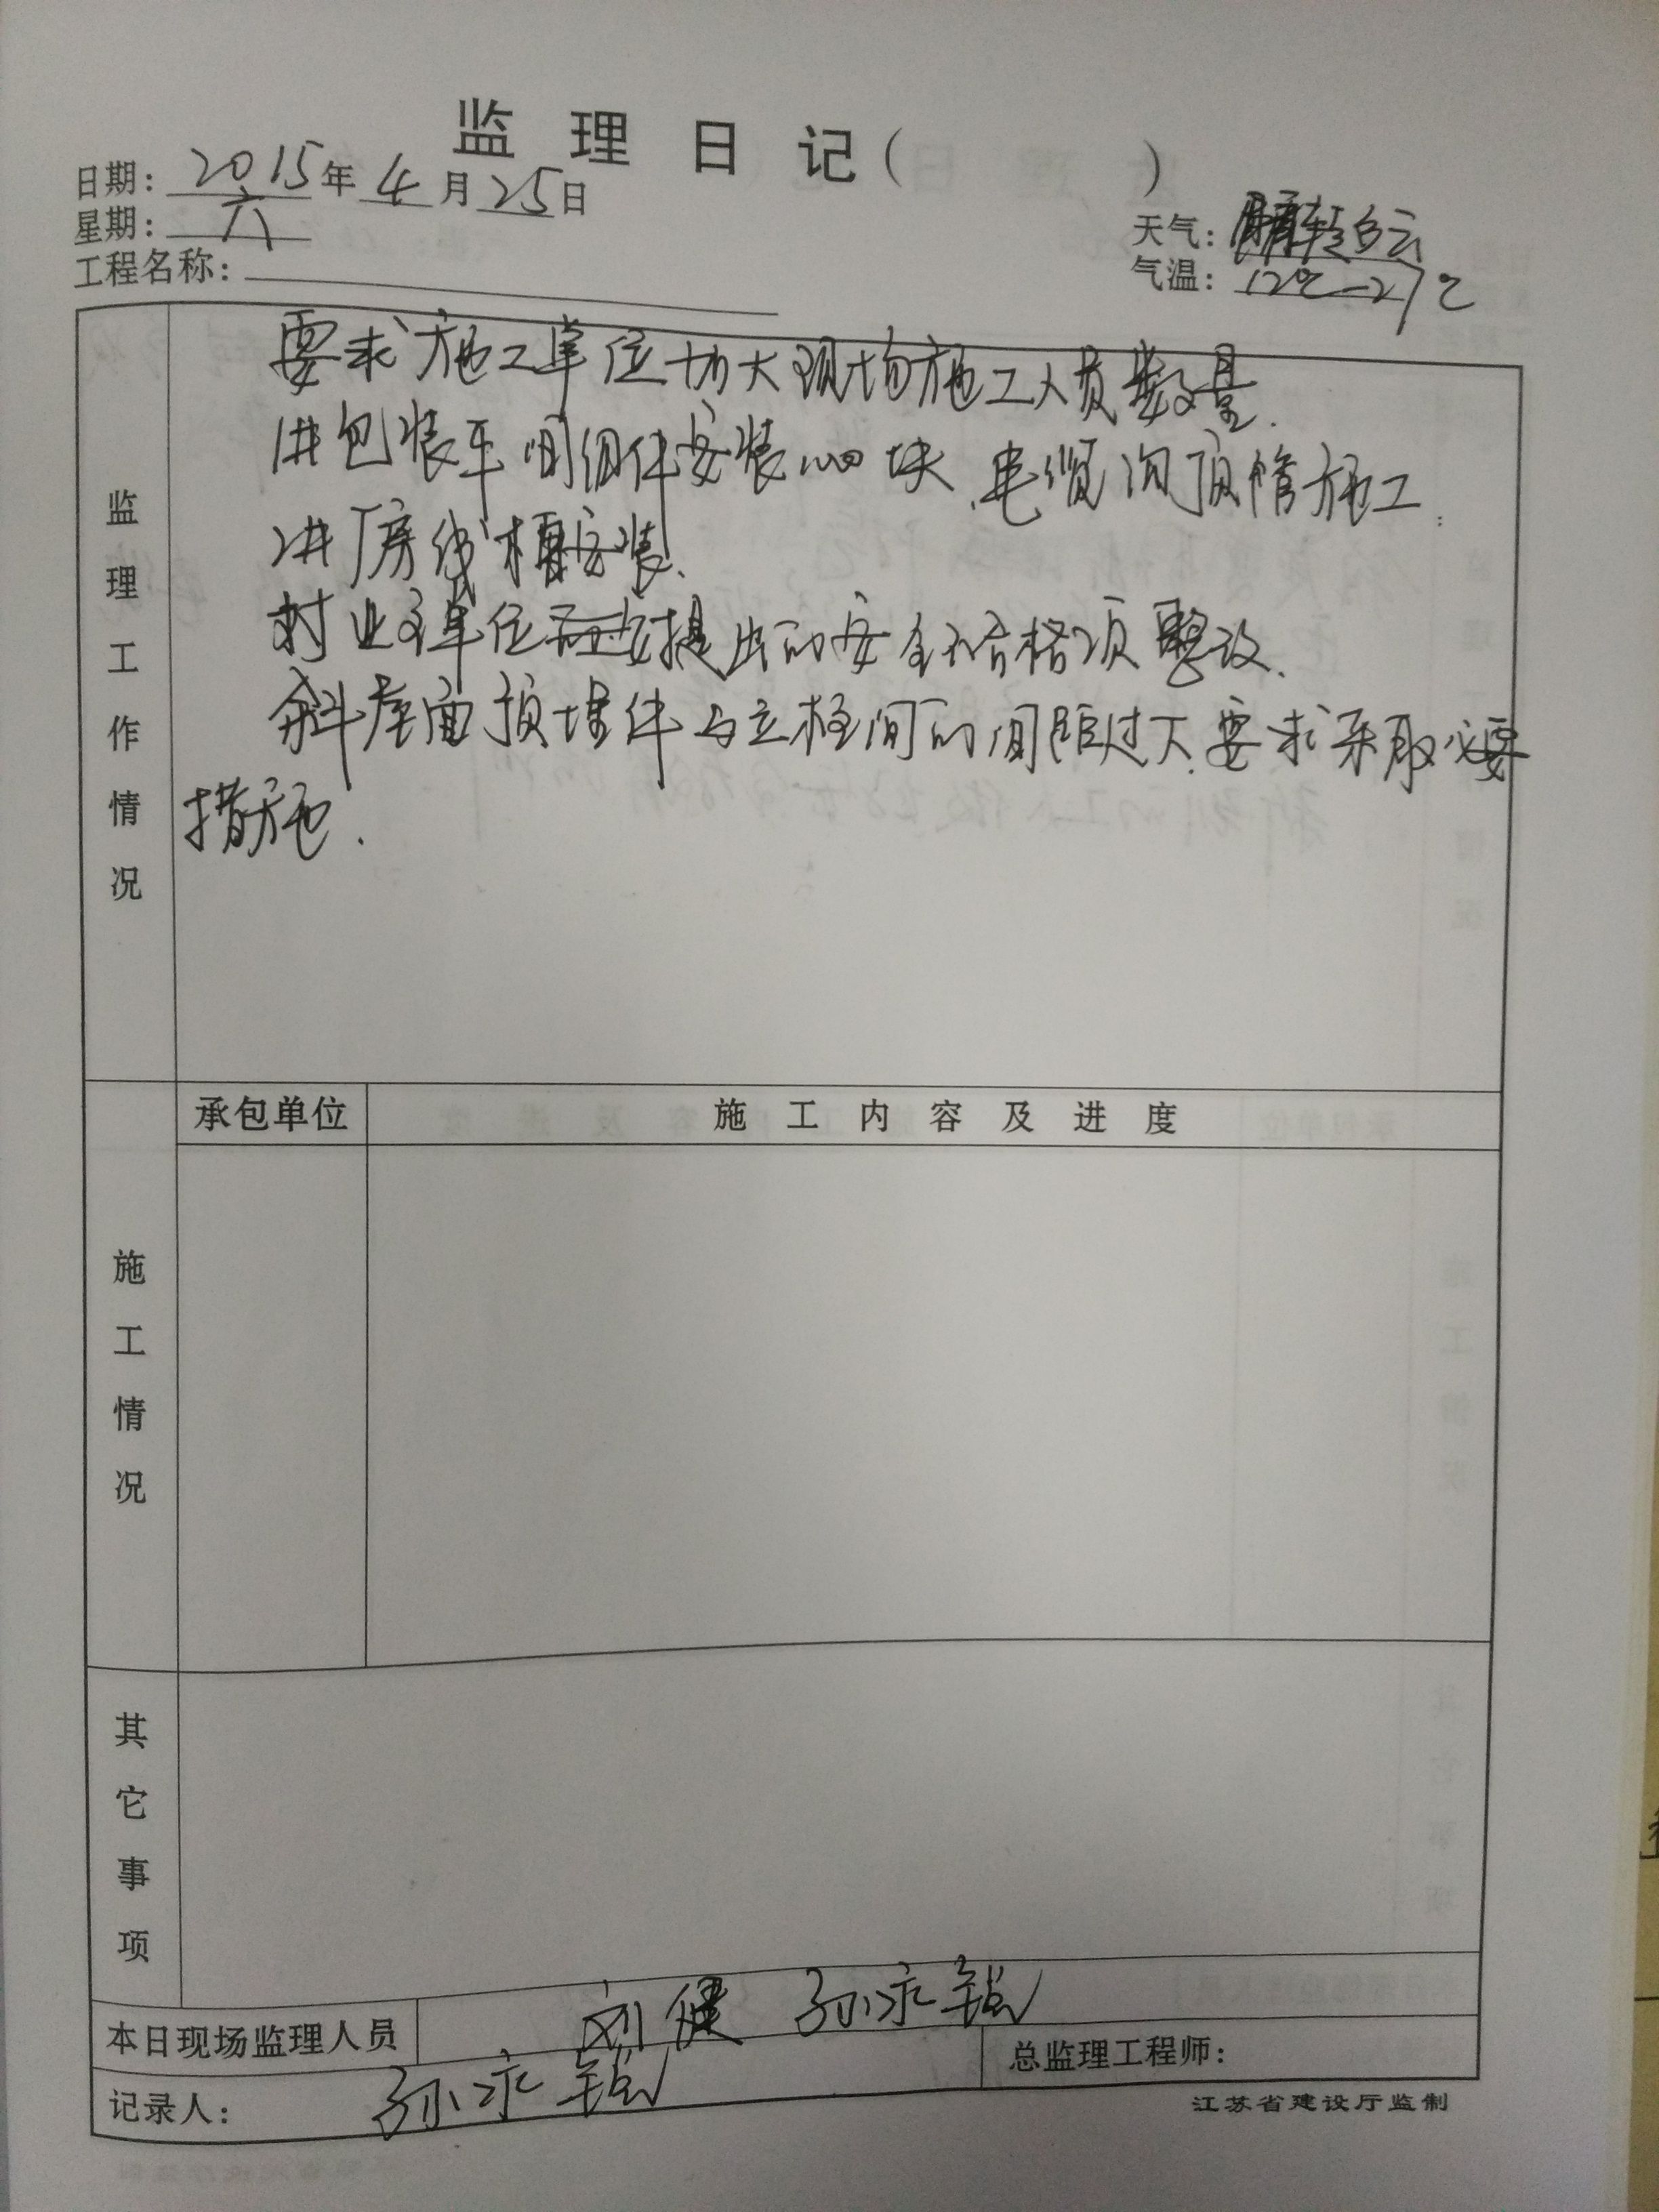 监理日记（ ）
日期：2015年4月25日
星期：六
天气：晴转多云
工程名称：
气温：12℃—27℃
监理工作情况
要求施工单位加大现场施工人员数量.
1#包装车间组件安装 块.电缆沟顶管施工.
2#厂房线槽安装.
对业主单位 提出的安全不合格项整改.
斜屋面预埋件与立柱间的间距过大.要求采取必要
措施.
承包单位 施工内容及进度
施工情况
其它事项
本日现场监理人员 刘健 孙永
记录人： 孙永
总监理工程师：
江苏省建设厅监制